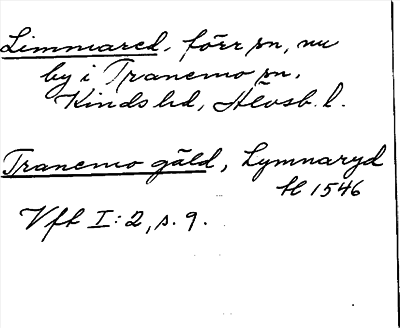 Limmared, förr sn, nu
by i Tranemo sn,
Kinds hd, Älvsb. l.
Tranemo gäld, Lymnaryd
H 1546
Vfl I:2, s. 9.